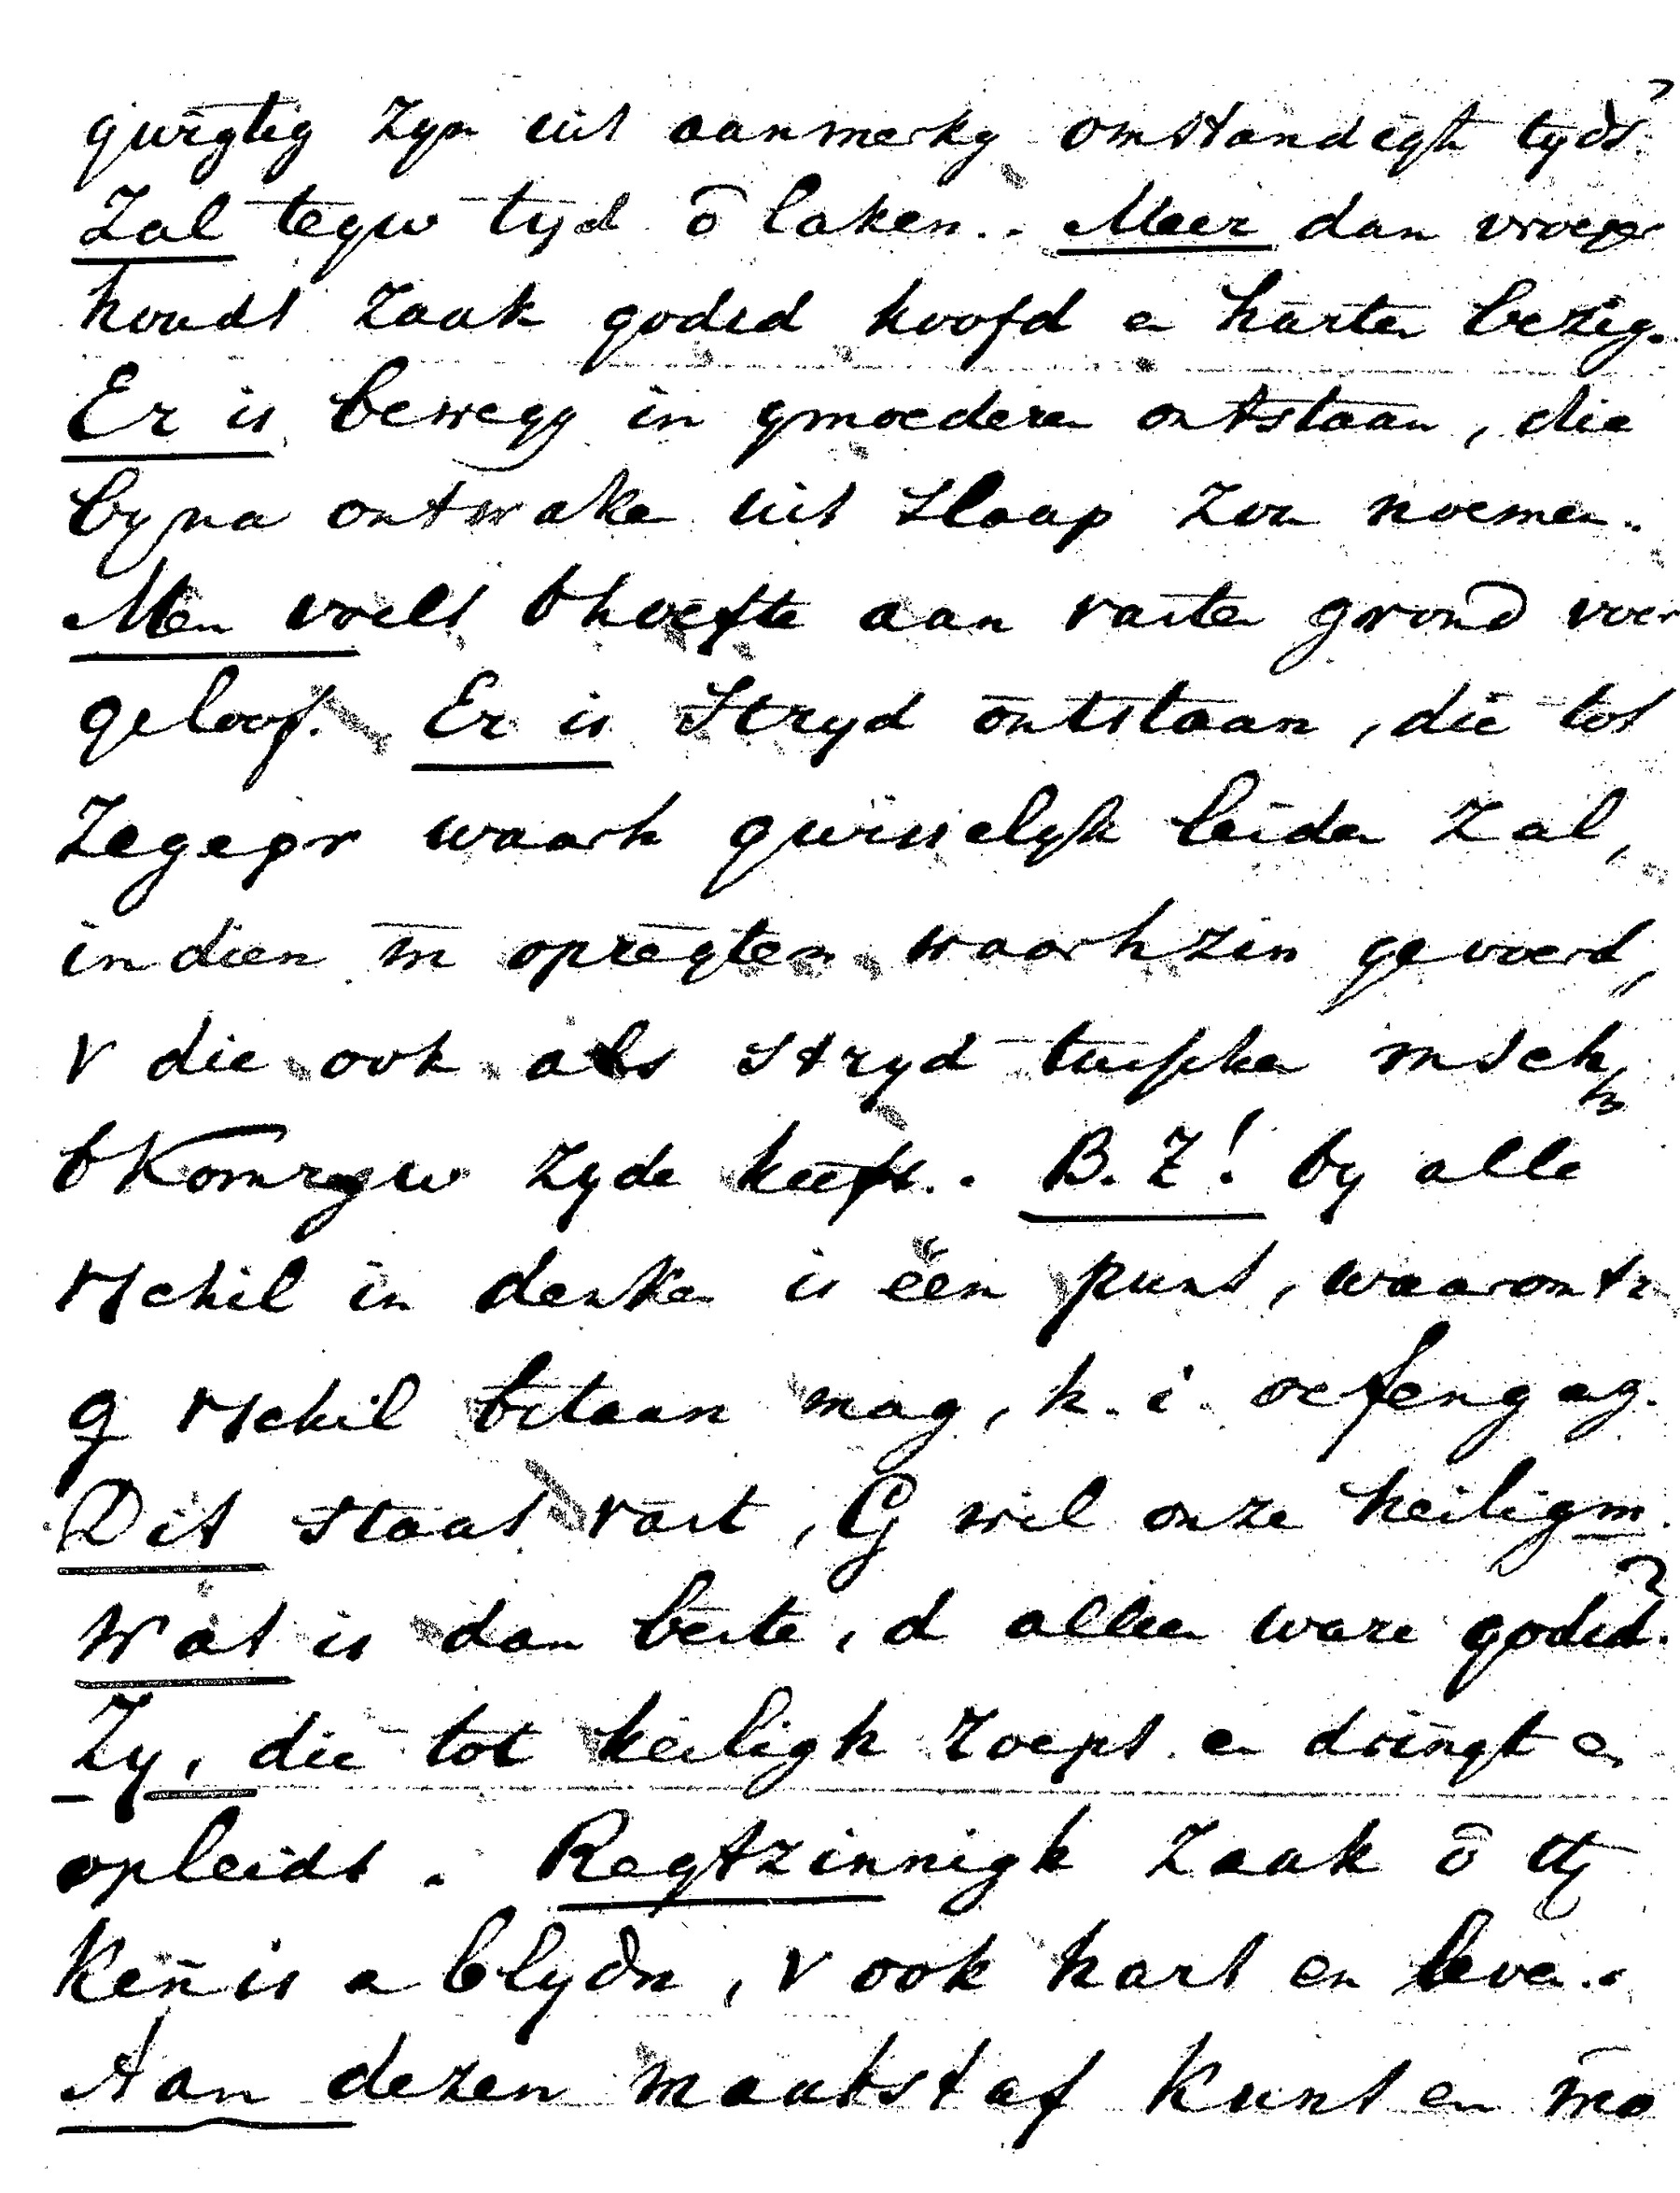 gwigtig zyn uit aanmerkg omstandigh tyds?
Zal tegw tyd ō laken.. Meer dan vroeger
houdt zaak godsd hoofd en harten bezig.
Er is bewegg in gmoederen ontstaan, die
byna ontwaken uit slaap zou noemen..
Men voelt bhoefte aan vasten grond voor
geloof. Er is Stryd ontstaan, die tot
Zegepr waarh gwisselyk leiden zal,
indien m opregten waarhzin gevoerd,
v die ook als Stryd tusschen msch
bkomrgw zyde heeft.. B. Z! by alle
vschil in denken is één punt, waaromtr
g vschil bstaan mag, h. i. oefeng ag.
Dit staat vast, G wil onze heiligm.
Wat is dan beste, d alleen ware godsd?
Zy, die tot heiligh roept en dringt en
opleidt. Regtzinnigh zaak ō
Kennis a blydn, v ook hart en leven..
Aan dezen maatstaf kunt en mo